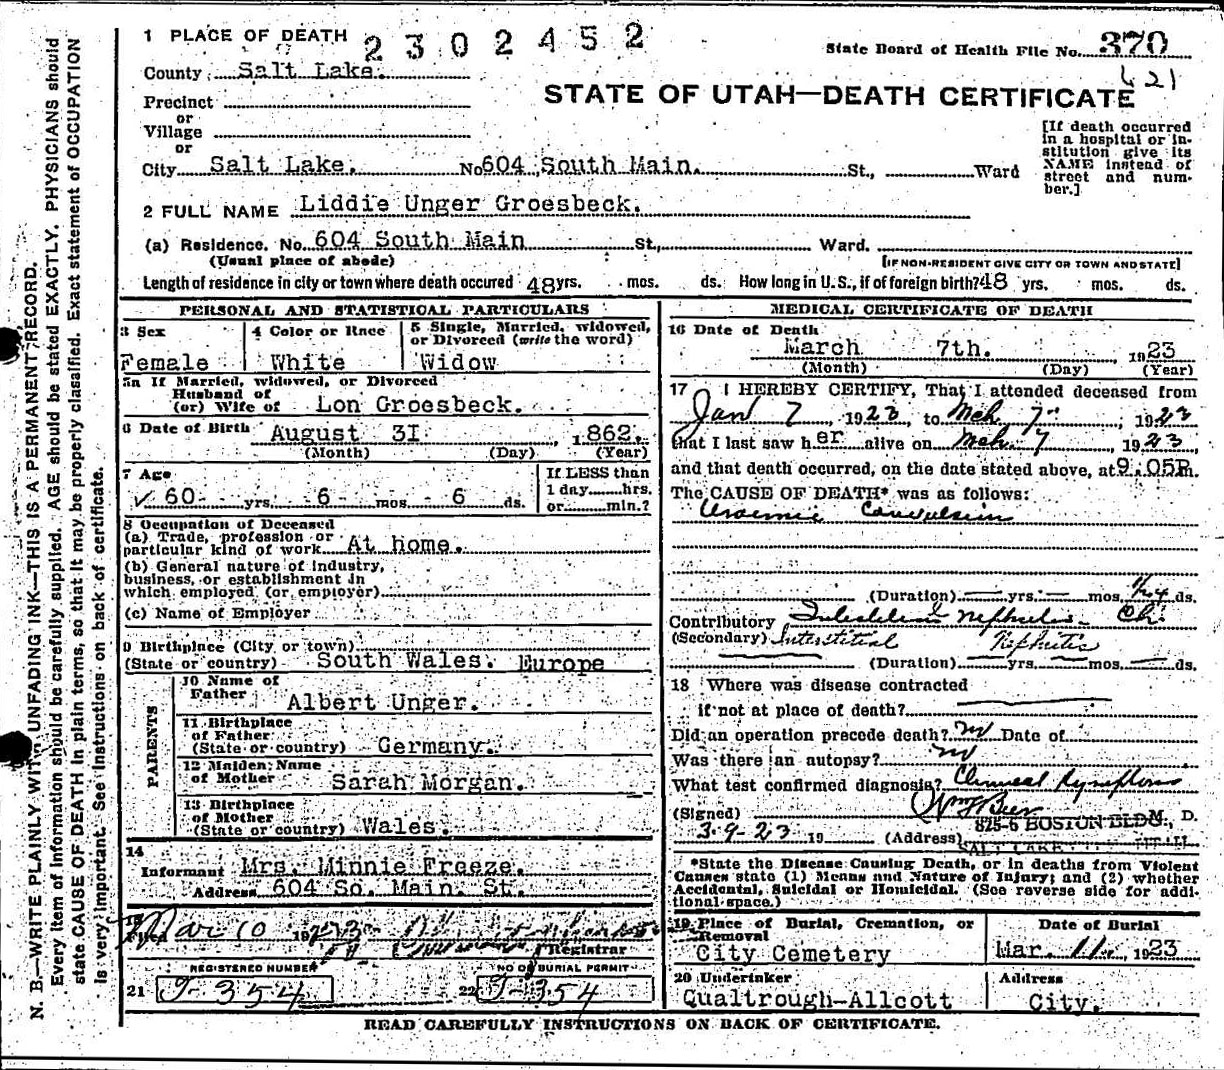 1 PLACE OF DEATH 2302452
State Board of Health File No. 370
County Salt Lake.
621
STATE OF UTAH—DEATH CERTIFICATE
Precinct
or
Village
or
City Salt Lake. No. 604 South Main. St., Ward
[If death occurred in a hospital or institution give its NAME instead of street and number.]
2 FULL NAME Liddie Unger Groesbeck.
(a) Residence. No. 604 South Main St., Ward.
(Usual place of abode) [IF NON-RESIDENT GIVE CITY OR TOWN AND STATE]
Length of residence in city or town where death occured 48 yrs. mos. ds. How long in U.S., if of foreign birth? 48 yrs. mos. ds.
PERSONAL AND STATISTICAL PARTICULARS
3 Sex Female
4 Color or Race White
5 Single, Married, widowed, or Divorced (write the word) Widow
5a If Married, widowed, or Divorced
Husband of
(or) Wife of Lon Groesbeck.
6 Date of Birth August 3I, 1862.
(Month) (Day) (Year)
7 Age
60 yrs. 6 mos 6 ds.
If LESS than
1 day......hrs.
or........min.?
8 Occupation of Deceased
(a) Trade, profession or
particular kind of work At home.
(b) General nature of industry,
business, or establishment in
which employed (or employer)
(c) Name of Employer
9 Birthplace (City or town)
(State or country) South Wales. Europe
PARENTS
10 Name of
Father Albert Unger.
11 Birthplace
of Father
(State or country) Germany.
12 Maiden Name
of Mother Sarah Morgan.
13 Birthplace
of Mother
(State or country) Wales.
14
Informant Mrs. Minnie Freeze.
Address 604 So. Main. St.
Filed Mar 10 1923
Registrar
REGISTERED NUMBER NO OF BURIAL PERMIT
21 J-354 22 J-354
MEDICAL CERTIFICATE OF DEATH
16 Date of Death
March 7th. 1923
(Month) (Day) (Year)
17 I HEREBY CERTIFY, That I attended deceased from
Jan 7, 1923, to Mch. 7th; 1923
that I last saw her alive on Mch. 7 1923,
and that death occurred, on the date stated above, at 9.05P m.
The CAUSE OF DEATH* was as follows:
Uraemic Convulsion
(Duration) yrs. mos. ds.
Contributory Interstitial Nephritis - Ch.
(Secondary) Interstitial Nephritis
(Duration) yrs. mos. ds.
18 Where was disease contracted
if not at place of death?
Did an operation precede death? no Date of
Was there an autopsy? no
What test confirmed diagnosis? Clinical Symptoms
(Signed) Wm F Beer M. D.
3-9-23 19 (Address) 825-6 BOSTON BLDG.,
SALT LAKE CITY UTAH
*State the Disease Causing Death, or in deaths from Violent
Causes state (1) Means and Nature of Injury; and (2) whether
Accidental, Suicidal or Homicidal. (See reverse side for addi-
tional space.)
19 Place of Burial, Cremation, or
Removal
City Cemetery
Date of Burial
Mar. 11, 1923
20 Undertaker
Qualtrough-Allcott
Address
City.
READ CAREFULLY INSTRUCTIONS ON BACK OF CERTIFICATE.
N. B.—WRITE PLAINLY WITH UNFADING INK—THIS IS A PERMANENT RECORD.
Every item of information should be carefully supplied. AGE should be stated EXACTLY. PHYSICIANS should
state CAUSE OF DEATH in plain terms, so that it may be properly classified. Exact statement of OCCUPATION
is very important. See instructions on back of certificate.